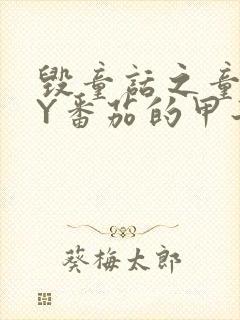 毁童话之童
Y番茄的甲
葵梅太郎